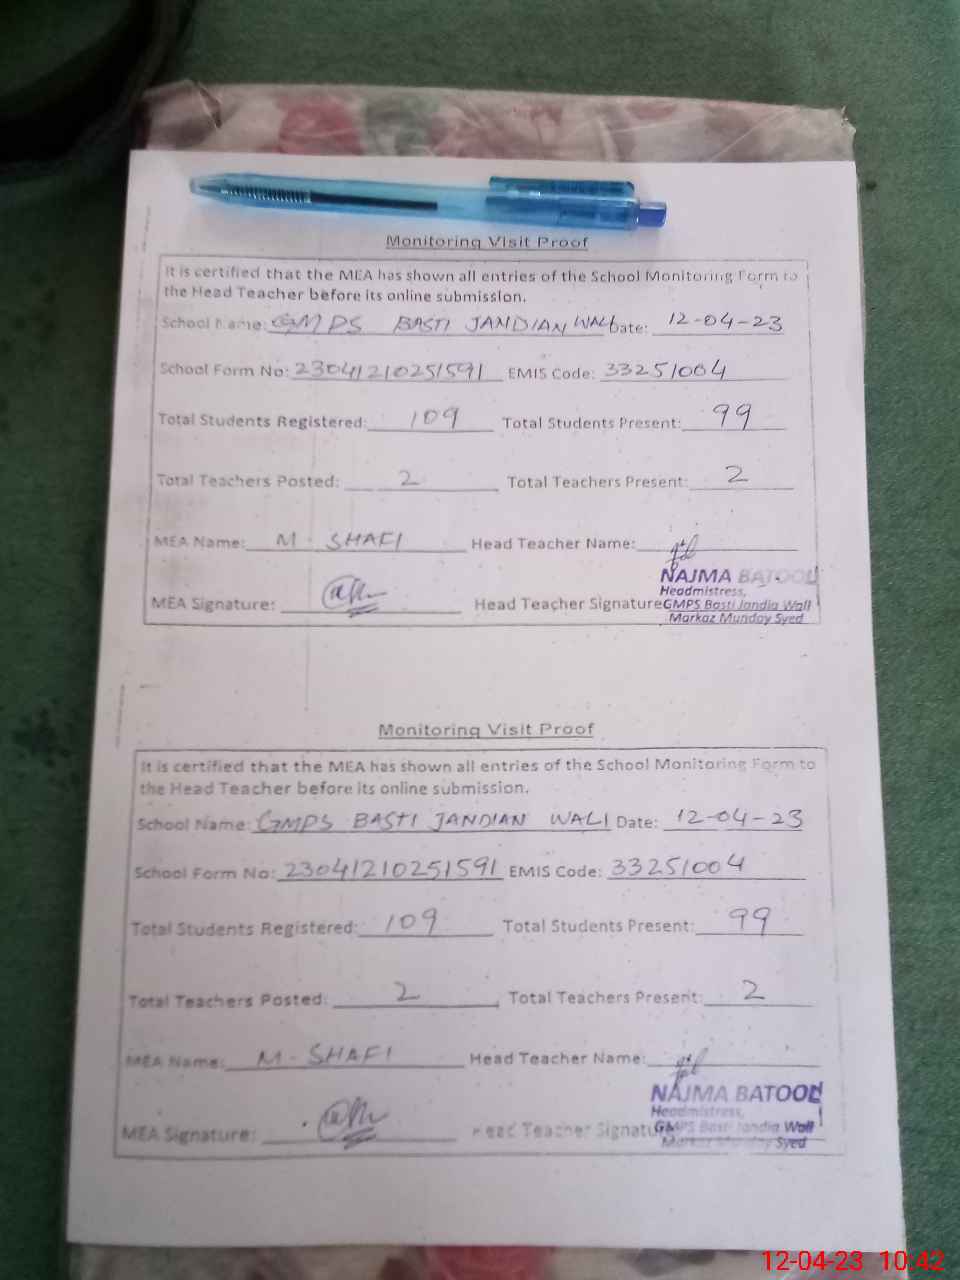 Monitoring Visit Proof
It is certified that the MEA has shown all entries of the School Monitoring Form to
the Head Teacher before its online submission.
School Name: GMPS BASTI JANDIAN WALI Date: 12-04-23
School Form No: 23041210251591 EMIS Code: 33251004
Total Students Registered: 109 Total Students Present: 99
Total Teachers Posted: 2 Total Teachers Present: 2
MEA Name: M. SHAFI Head Teacher Name:
NAJMA BATOOL
Headmistress,
MEA Signature: Head Teacher Signature GMPS Basti Jandia Wali
Markaz Munday Syed
Monitoring Visit Proof
It is certified that the MEA has shown all entries of the School Monitoring Form to
the Head Teacher before its online submission.
School Name: GMPS BASTI JANDIAN WALI Date: 12-04-23
School Form No: 23041210251591 EMIS Code: 33251004
Total Students Registered: 109 Total Students Present: 99
Total Teachers Posted: 2 Total Teachers Present: 2
MEA Name: M. SHAFI Head Teacher Name:
NAJMA BATOOL
Headmistress,
MEA Signature: Head Teacher Signature GMPS Basti Jandia Wali
Markaz Munday Syed
12-04-23 10:42